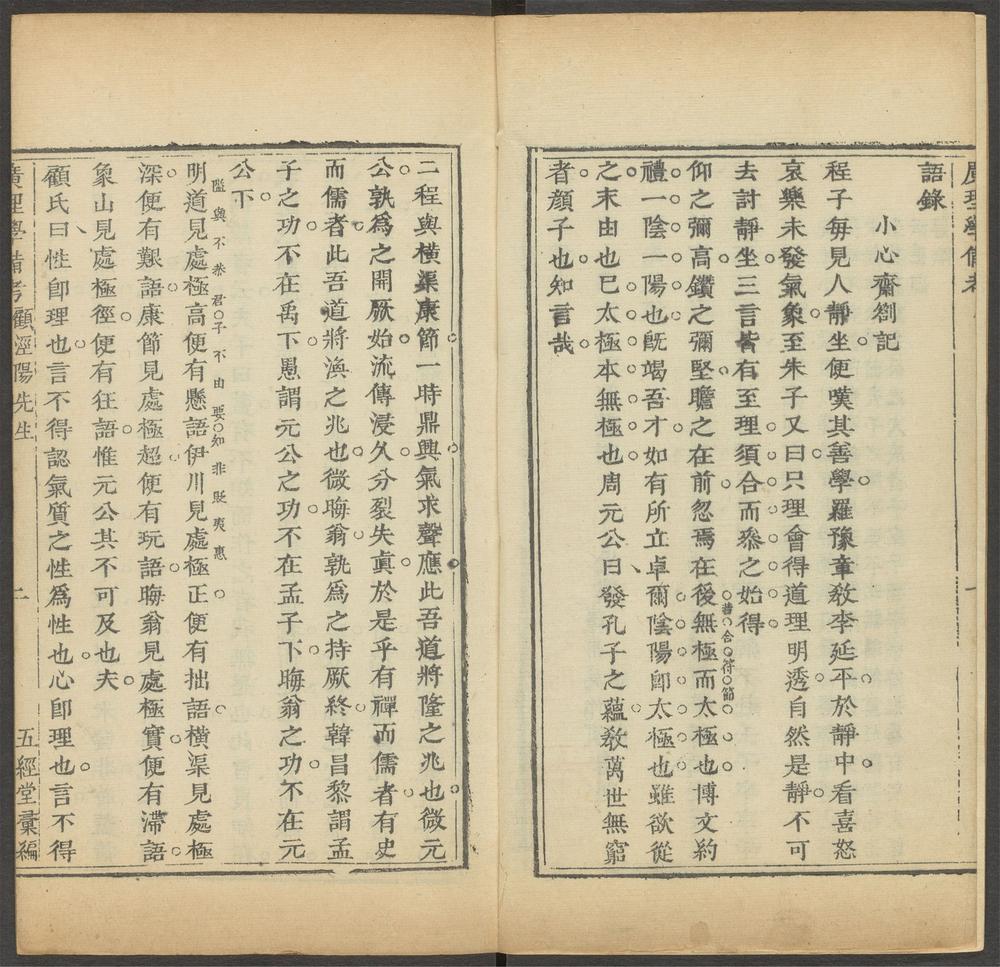 廣理學備考
語錄
小心齋劄記
程子每見人靜坐便嘆其善學羅豫章敎李延平於靜中看喜怒
哀樂未發氣象至朱子又曰只理會得道理明透自然是靜不可
去討靜坐三言皆有至理須合而叅之始得
仰之彌高鑽之彌堅瞻之在前忽焉在後無極而太極也博文約
若合符節
禮一陰一陽也旣竭吾才如有所立卓爾陰陽卽太極也雖欲從
之末由也已太極本無極也周元公曰發孔子之蘊敎萬世無窮
者顏子也知言哉
一
二程與橫渠康節一時鼎興氣求聲應此吾道將隆之兆也微元
公孰爲之開厥始流傳浸久分裂失眞於是乎有禪而儒者有史
而儒者此吾道將渙之兆也微晦翁孰爲之持厥終韓昌黎謂孟
子之功不在禹下愚謂元公之功不在孟子下晦翁之功不在元
公下
隘與不恭君子不由要知非貶夷惠
明道見處極高便有懸語伊川見處極正便有拙語橫渠見處極
深便有艱語康節見處極超便有玩語晦翁見處極實便有滯語
象山見處極徑便有狂語惟元公其不可及也夫
顧氏曰性卽理也言不得認氣質之性爲性也心卽理也言不得
廣理學備考 顧涇陽先生 二 五經堂彙編